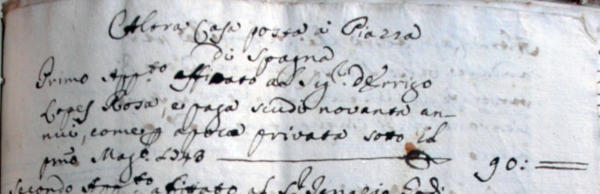 Altra Casa posta à Piazza
di Spagna
Primo App.to affittato al Sig.r
Lopes Rosa, e paga scudi novanta an-
nui, come p apoca privata sotto il
p.mo Mag.o 1743 90:
Secondo App.to affittato al S.r Ignazio